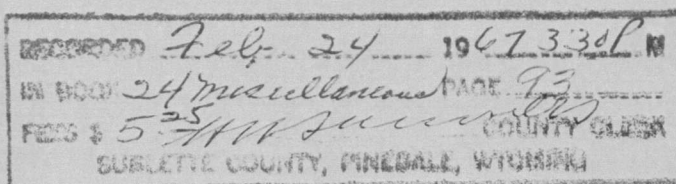 RECORDED Feb 24 1967 330 P M
IN BOOK 24 Miscellaneous PAGE 93
FEES $ 5.25 COUNTY CLERK
SUBLETTE COUNTY, PINEDALE, WYOMING